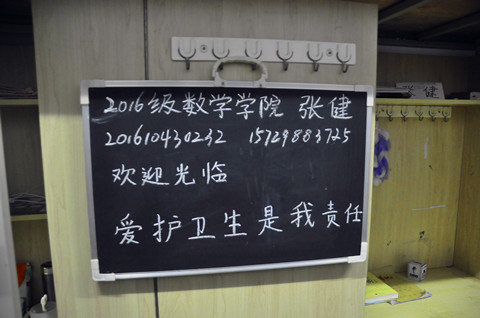 2016级数学学院 张健
201610430232 15729883725
欢迎光临
爱护卫生是我责任
张健